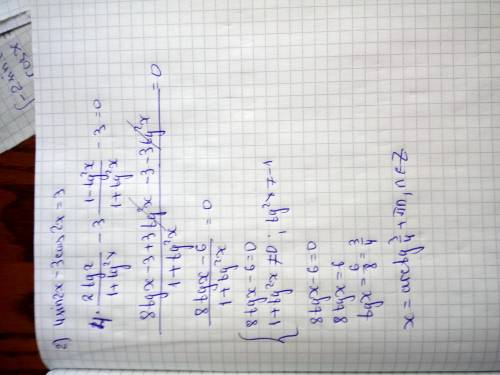 2) 4sin2x - 3cos2x = 3
4· 2tgx/1+tg²x - 3 1-tg²x/1+tg²x - 3 = 0
8tgx - 3 + 3tg²x - 3 - 3tg²x/1+tg²x = 0
8tgx - 6/1+tg²x = 0
{8tgx - 6 = 0
1+tg²x ≠ 0 ; tg²x ≠ -1
8tgx - 6 = 0
8tgx = 6
tgx = 6/8 = 3/4
x = arctg 3/4 + πn, n∈Z